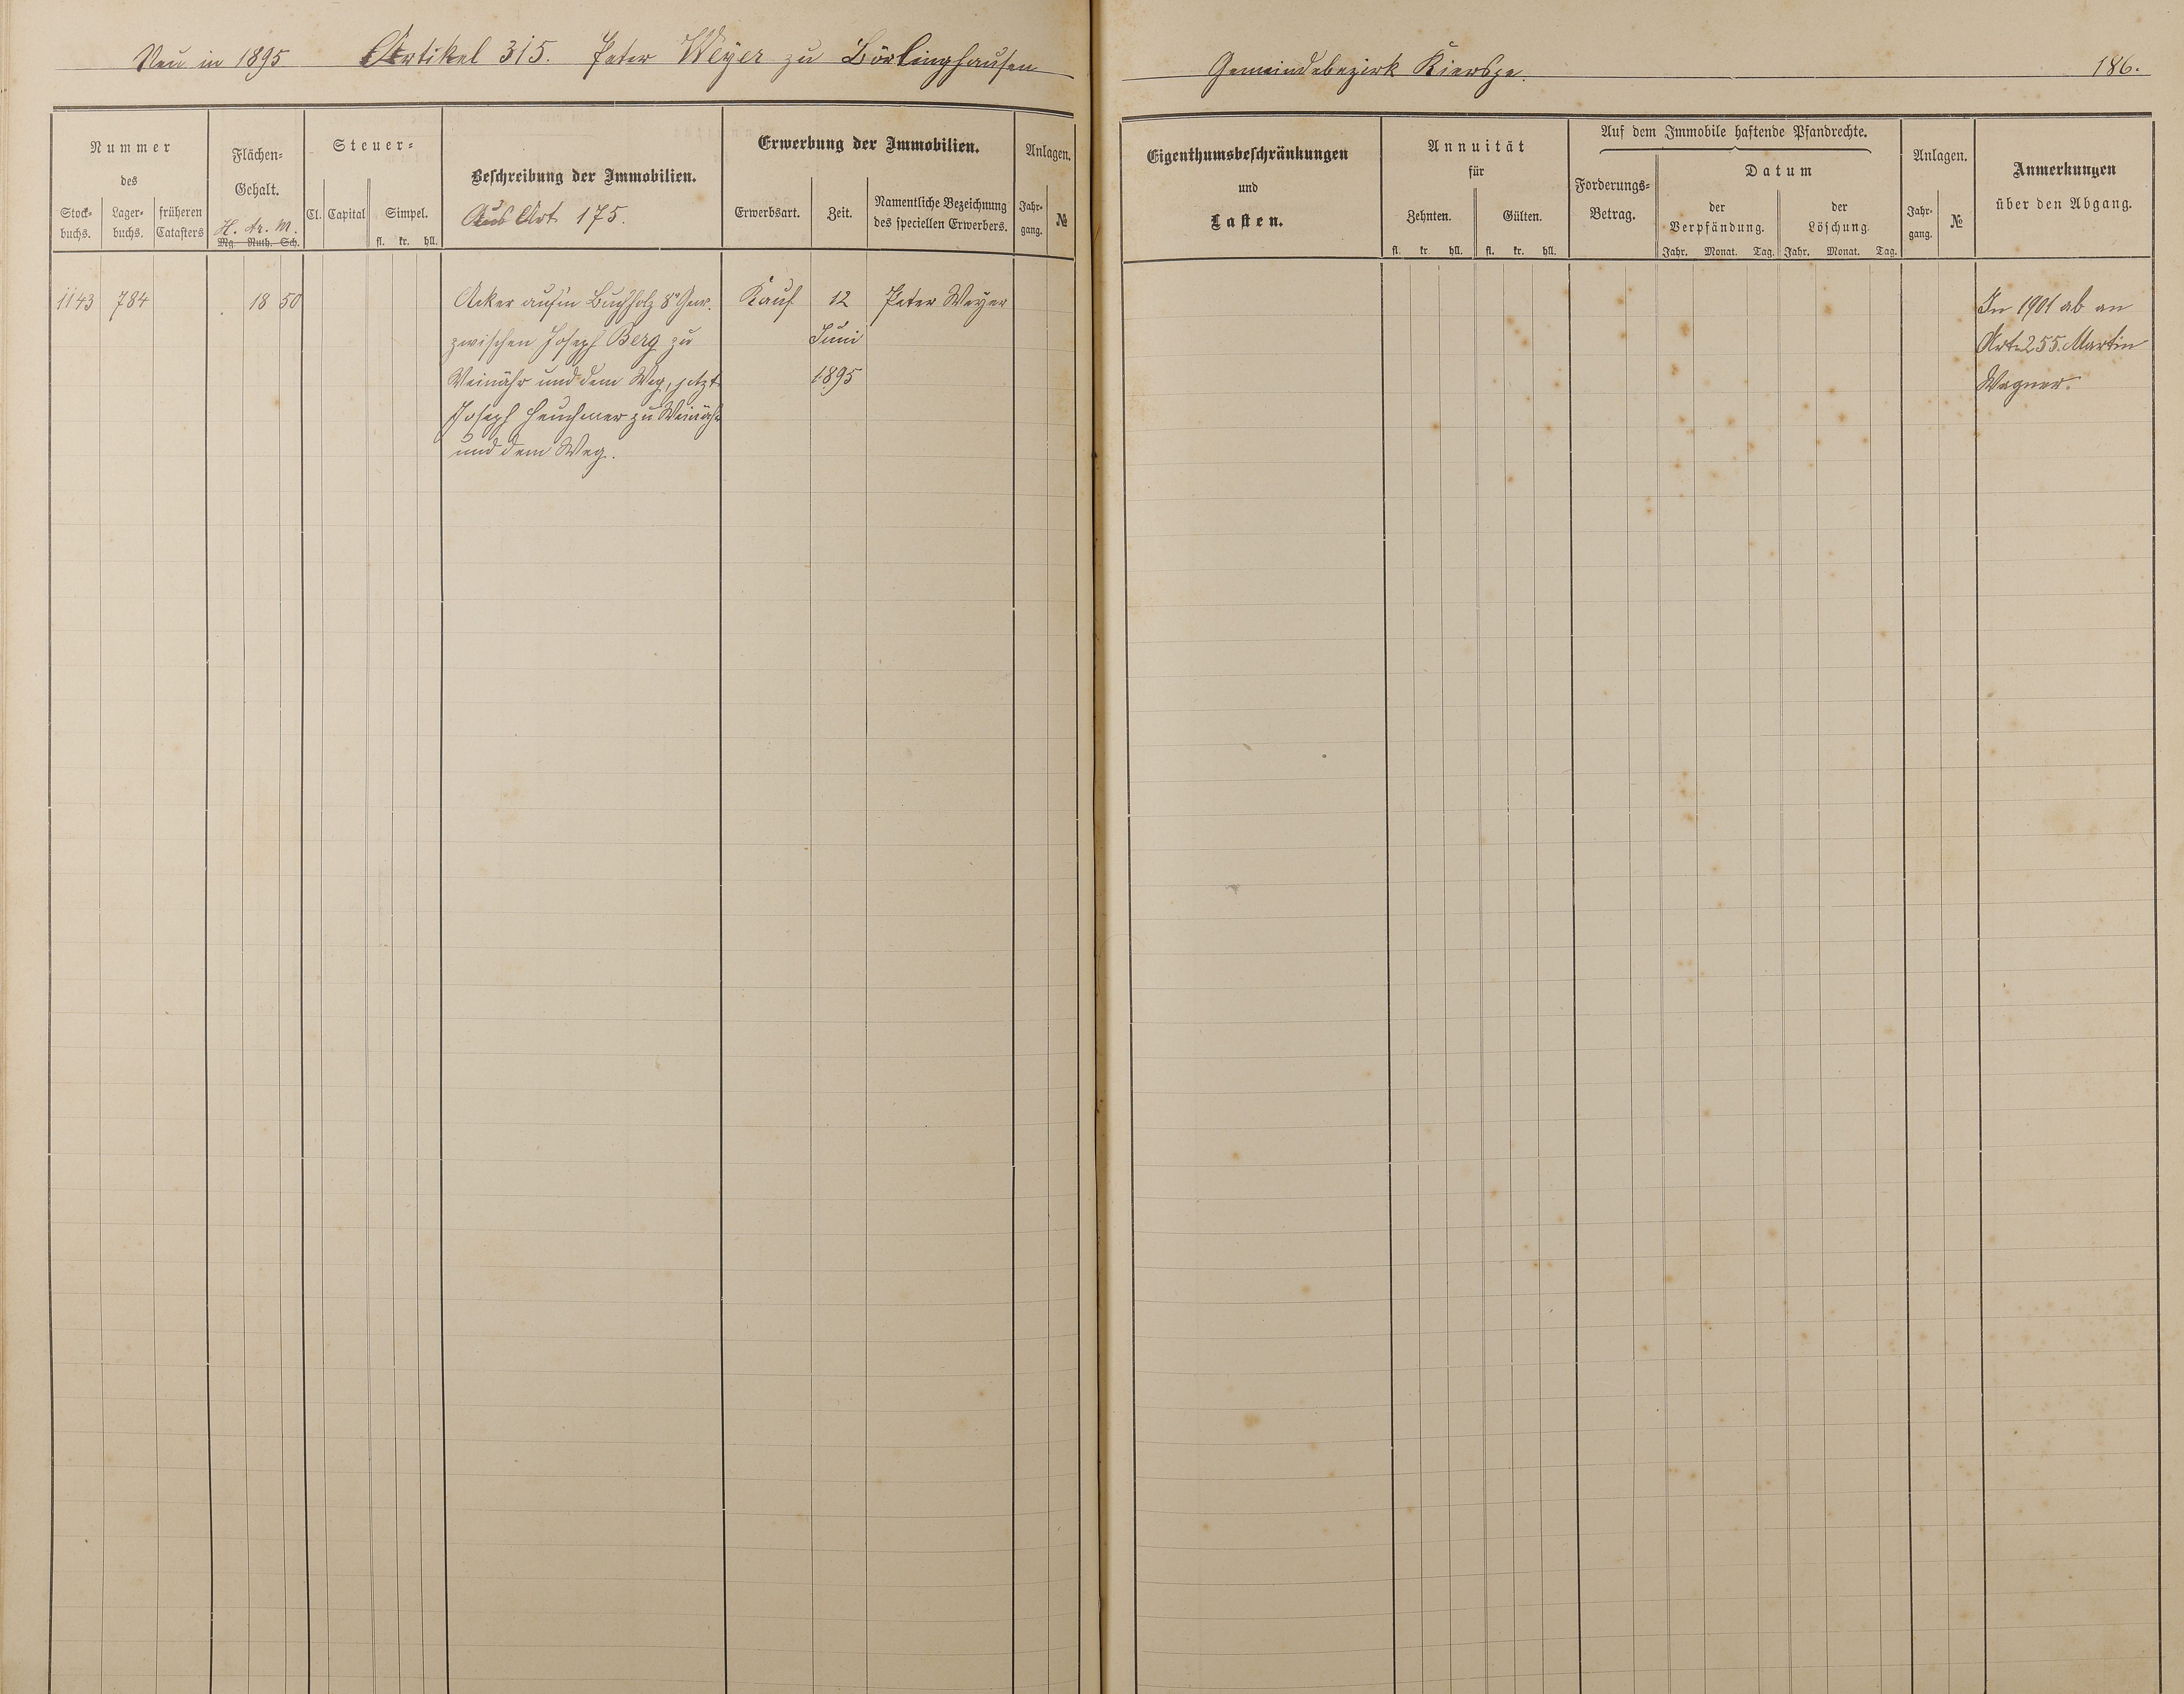 Neu in 1895 Artikel 315. Peter Weyer zu Börlinghausen
Gemeindebezirk Kierspe. 186.
Nummer
des
Stock-
buchs.
Lager-
buchs.
früheren
Catasters
Flächen-
Gehalt.
H. Ar. M.
Mg. Ruth. Sch.
Steuer-
Cl. Capital Simpel.
fl. kr. hll.
Beschreibung der Immobilien.
Aus Art. 175.
Erwerbung der Immobilien.
Erwerbsart. Zeit.
Namentliche Bezeichnung
des speciellen Erwerbers.
Anlagen.
Jahr-
gang.
№
Eigenthumsbeschränkungen
und
Lasten.
Annuität
für
Zehnten. Gülten.
fl. kr. hll. fl. kr. hll.
Auf dem Immobile haftende Pfandrechte.
Forderungs-
Betrag.
Datum
der
Verpfändung.
der
Löschung.
Jahr. Monat. Tag. Jahr. Monat. Tag.
Anlagen.
Jahr-
gang.
№
Anmerkungen
über den Abgang.
1143 784 18 50 Acker auf'm Buchholz 8r Gew. Kauf 12 Peter Weyer
zwischen Joseph Berg zu Juni
Weinähr und dem Weg, jetzt 1895
Joseph Heuchmer zu Weinähr
und dem Weg.
In 1901 ab an
Art. 255. Martin
Wagner.